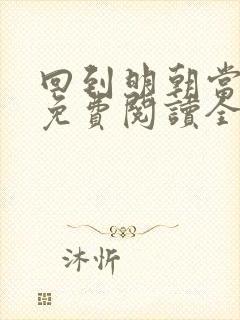 回到明朝當
免費閱讀全
沐忻